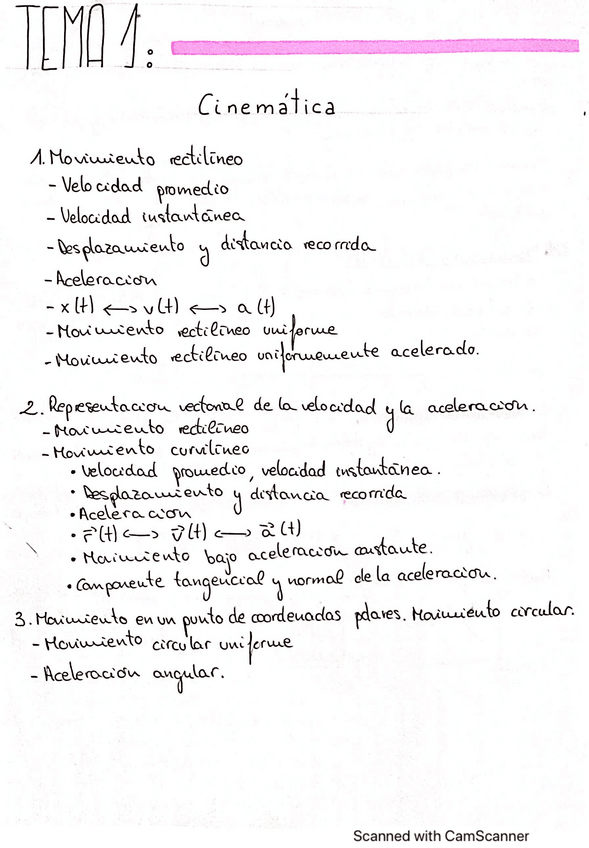 TEMA 1:
Cinemática
1. Movimiento rectilíneo
- Velocidad promedio
- Velocidad instantánea
- Desplazamiento y distancia recorrida
- Aceleracion
- x(t) ⟷ v(t) ⟷ a(t)
- Movimiento rectilíneo uniforme
- Movimiento rectilíneo uniformemente acelerado.
2. Representacion vectorial de la velocidad y la aceleracion.
- Movimiento rectilíneo
- Movimiento curvilíneo
• Velocidad promedio, velocidad instantánea.
• Desplazamiento y distancia recorrida
• Aceleracion
• r⃗(t) ⟷ v⃗(t) ⟷ a⃗(t)
• Movimiento bajo aceleracion constante.
• Componente tangencial y normal de la aceleracion.
3. Movimiento en un punto de coordenadas polares. Movimiento circular.
- Movimiento circular uniforme
- Aceleracion angular.
Scanned with CamScanner